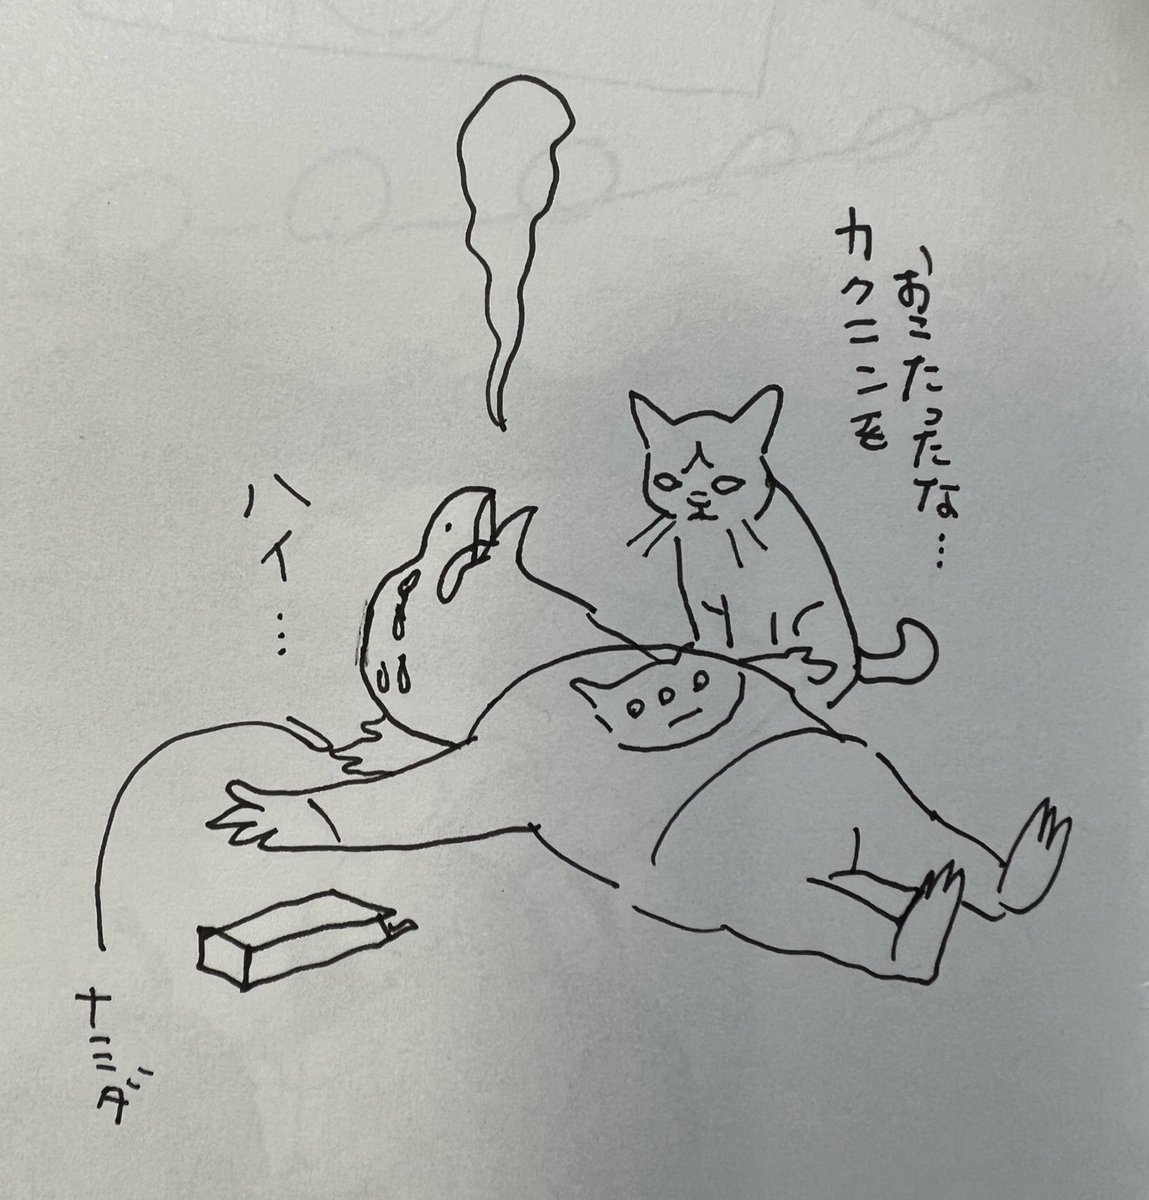 カクニンを
おこたったな…
ハイ…
ナミダ